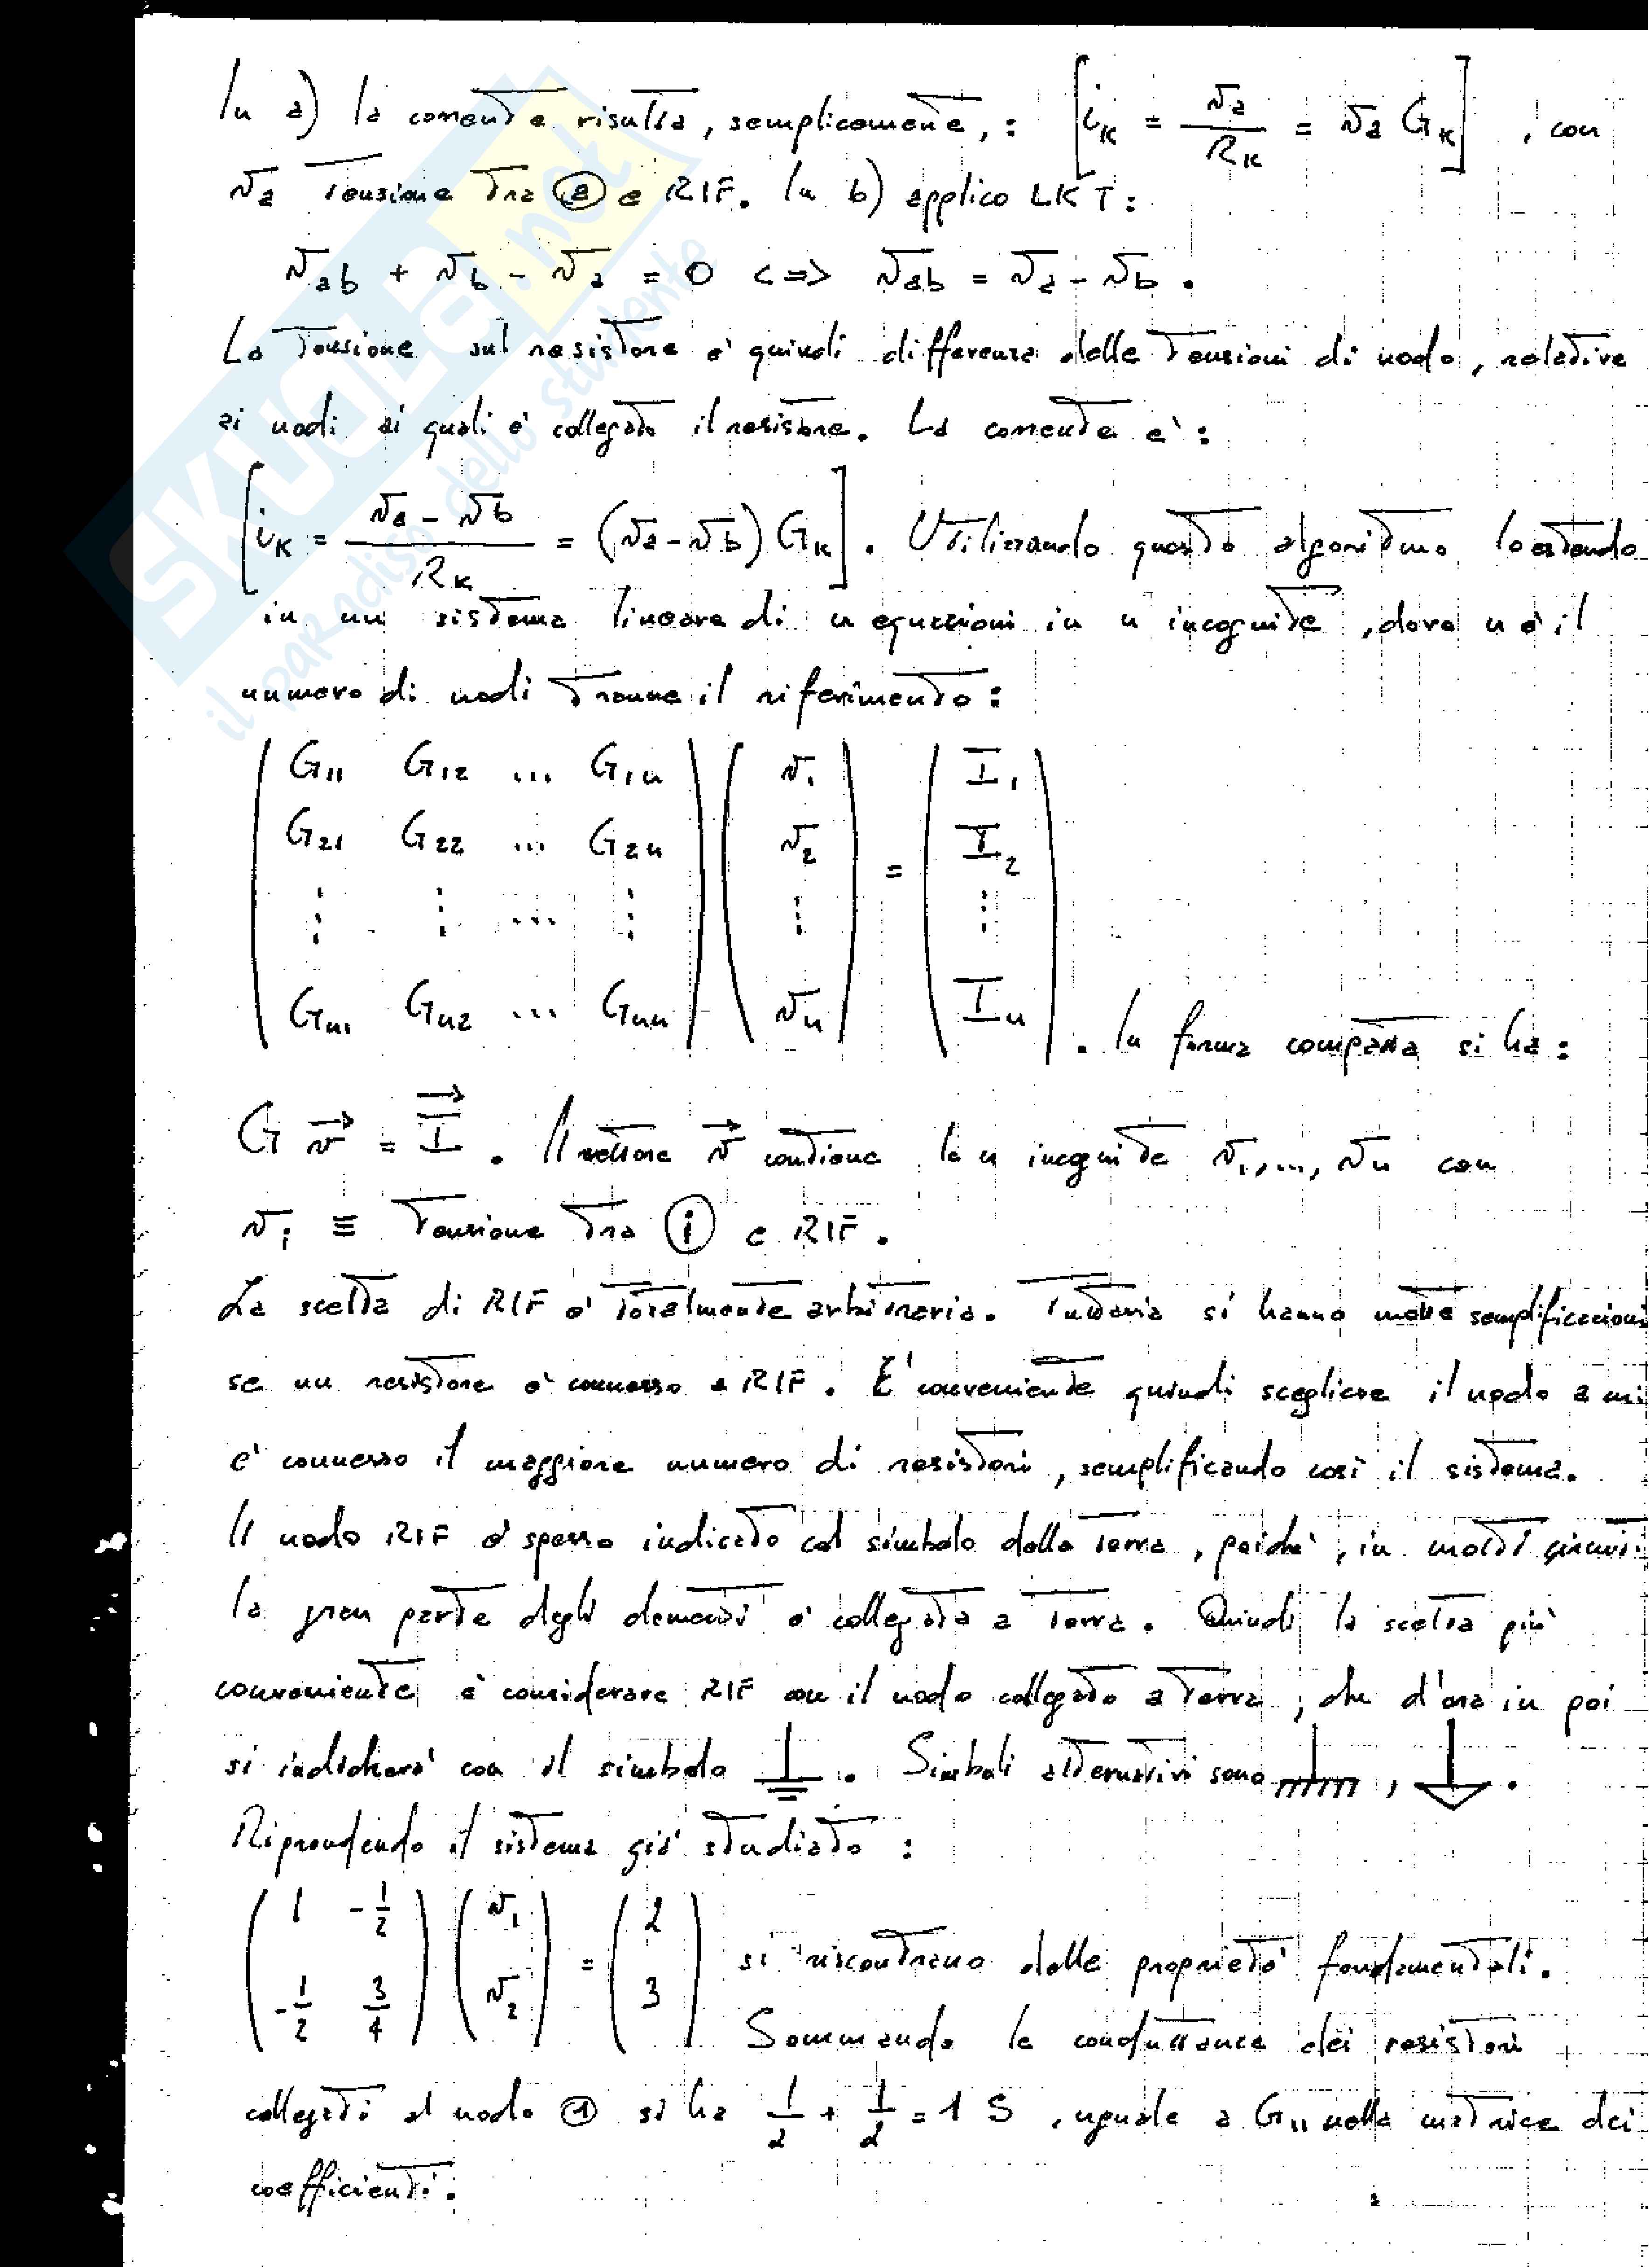 In a) la corrente risulta, semplicemente, : [i_K = v_a / R_K = v_a G_K] , con
v_a tensione tra ⓐ e RIF. In b) applico LKT:
v_ab + v_b - v_a = 0 <=> v_ab = v_a - v_b .
La tensione sul resistore è quindi differenza delle tensioni di nodo, relative
ai nodi ai quali è collegato il resistore. La corrente è:
[i_K = (v_a - v_b) / R_K = (v_a - v_b) G_K] . Utilizzando questo algoritmo lo estendo
in un sistema lineare di n equazioni in n incognite , dove n è il
numero di nodi tranne il riferimento:
( G11 G12 ... G1n ) ( v1 ) = ( I1 )
( G21 G22 ... G2n ) ( v2 ) ( I2 )
( ⋮ ⋮ ... ⋮ ) ( ⋮ ) ( ⋮ )
( Gn1 Gn2 ... Gnn ) ( vn ) ( In ) . In forma compatta si ha:
G v⃗ = I⃗ . Il vettore v⃗ contiene le n incognite v1,..., vn con
v_i ≡ Tensione tra ⓘ e RIF.
La scelta di RIF è totalmente arbitraria. Tuttavia si hanno molte semplificazioni
se un resistore è connesso a RIF. E' conveniente quindi scegliere il nodo a cui
è connesso il maggiore numero di resistori, semplificando così il sistema.
Il nodo RIF è spesso indicato col simbolo della terra, poiché, in molti circuiti
la gran parte degli elementi è collegata a terra. Quindi la scelta più
conveniente è considerare RIF con il nodo collegato a terra, che d'ora in poi
si indicherà con il simbolo ⏚ . Simboli alternativi sono , .
Riprendendo il sistema già studiato :
( 1 -1/2 ) ( v1 ) = ( 2 ) si riscontrano delle proprietà fondamentali.
( -1/2 3/4 ) ( v2 ) ( 3 ) Sommando le conduttanze dei resistori
collegati al nodo ① si ha 1/2 + 1/2 = 1 S , uguale a G11 nella matrice dei
coefficienti.
SKUOLA.net
il paradiso dello studente